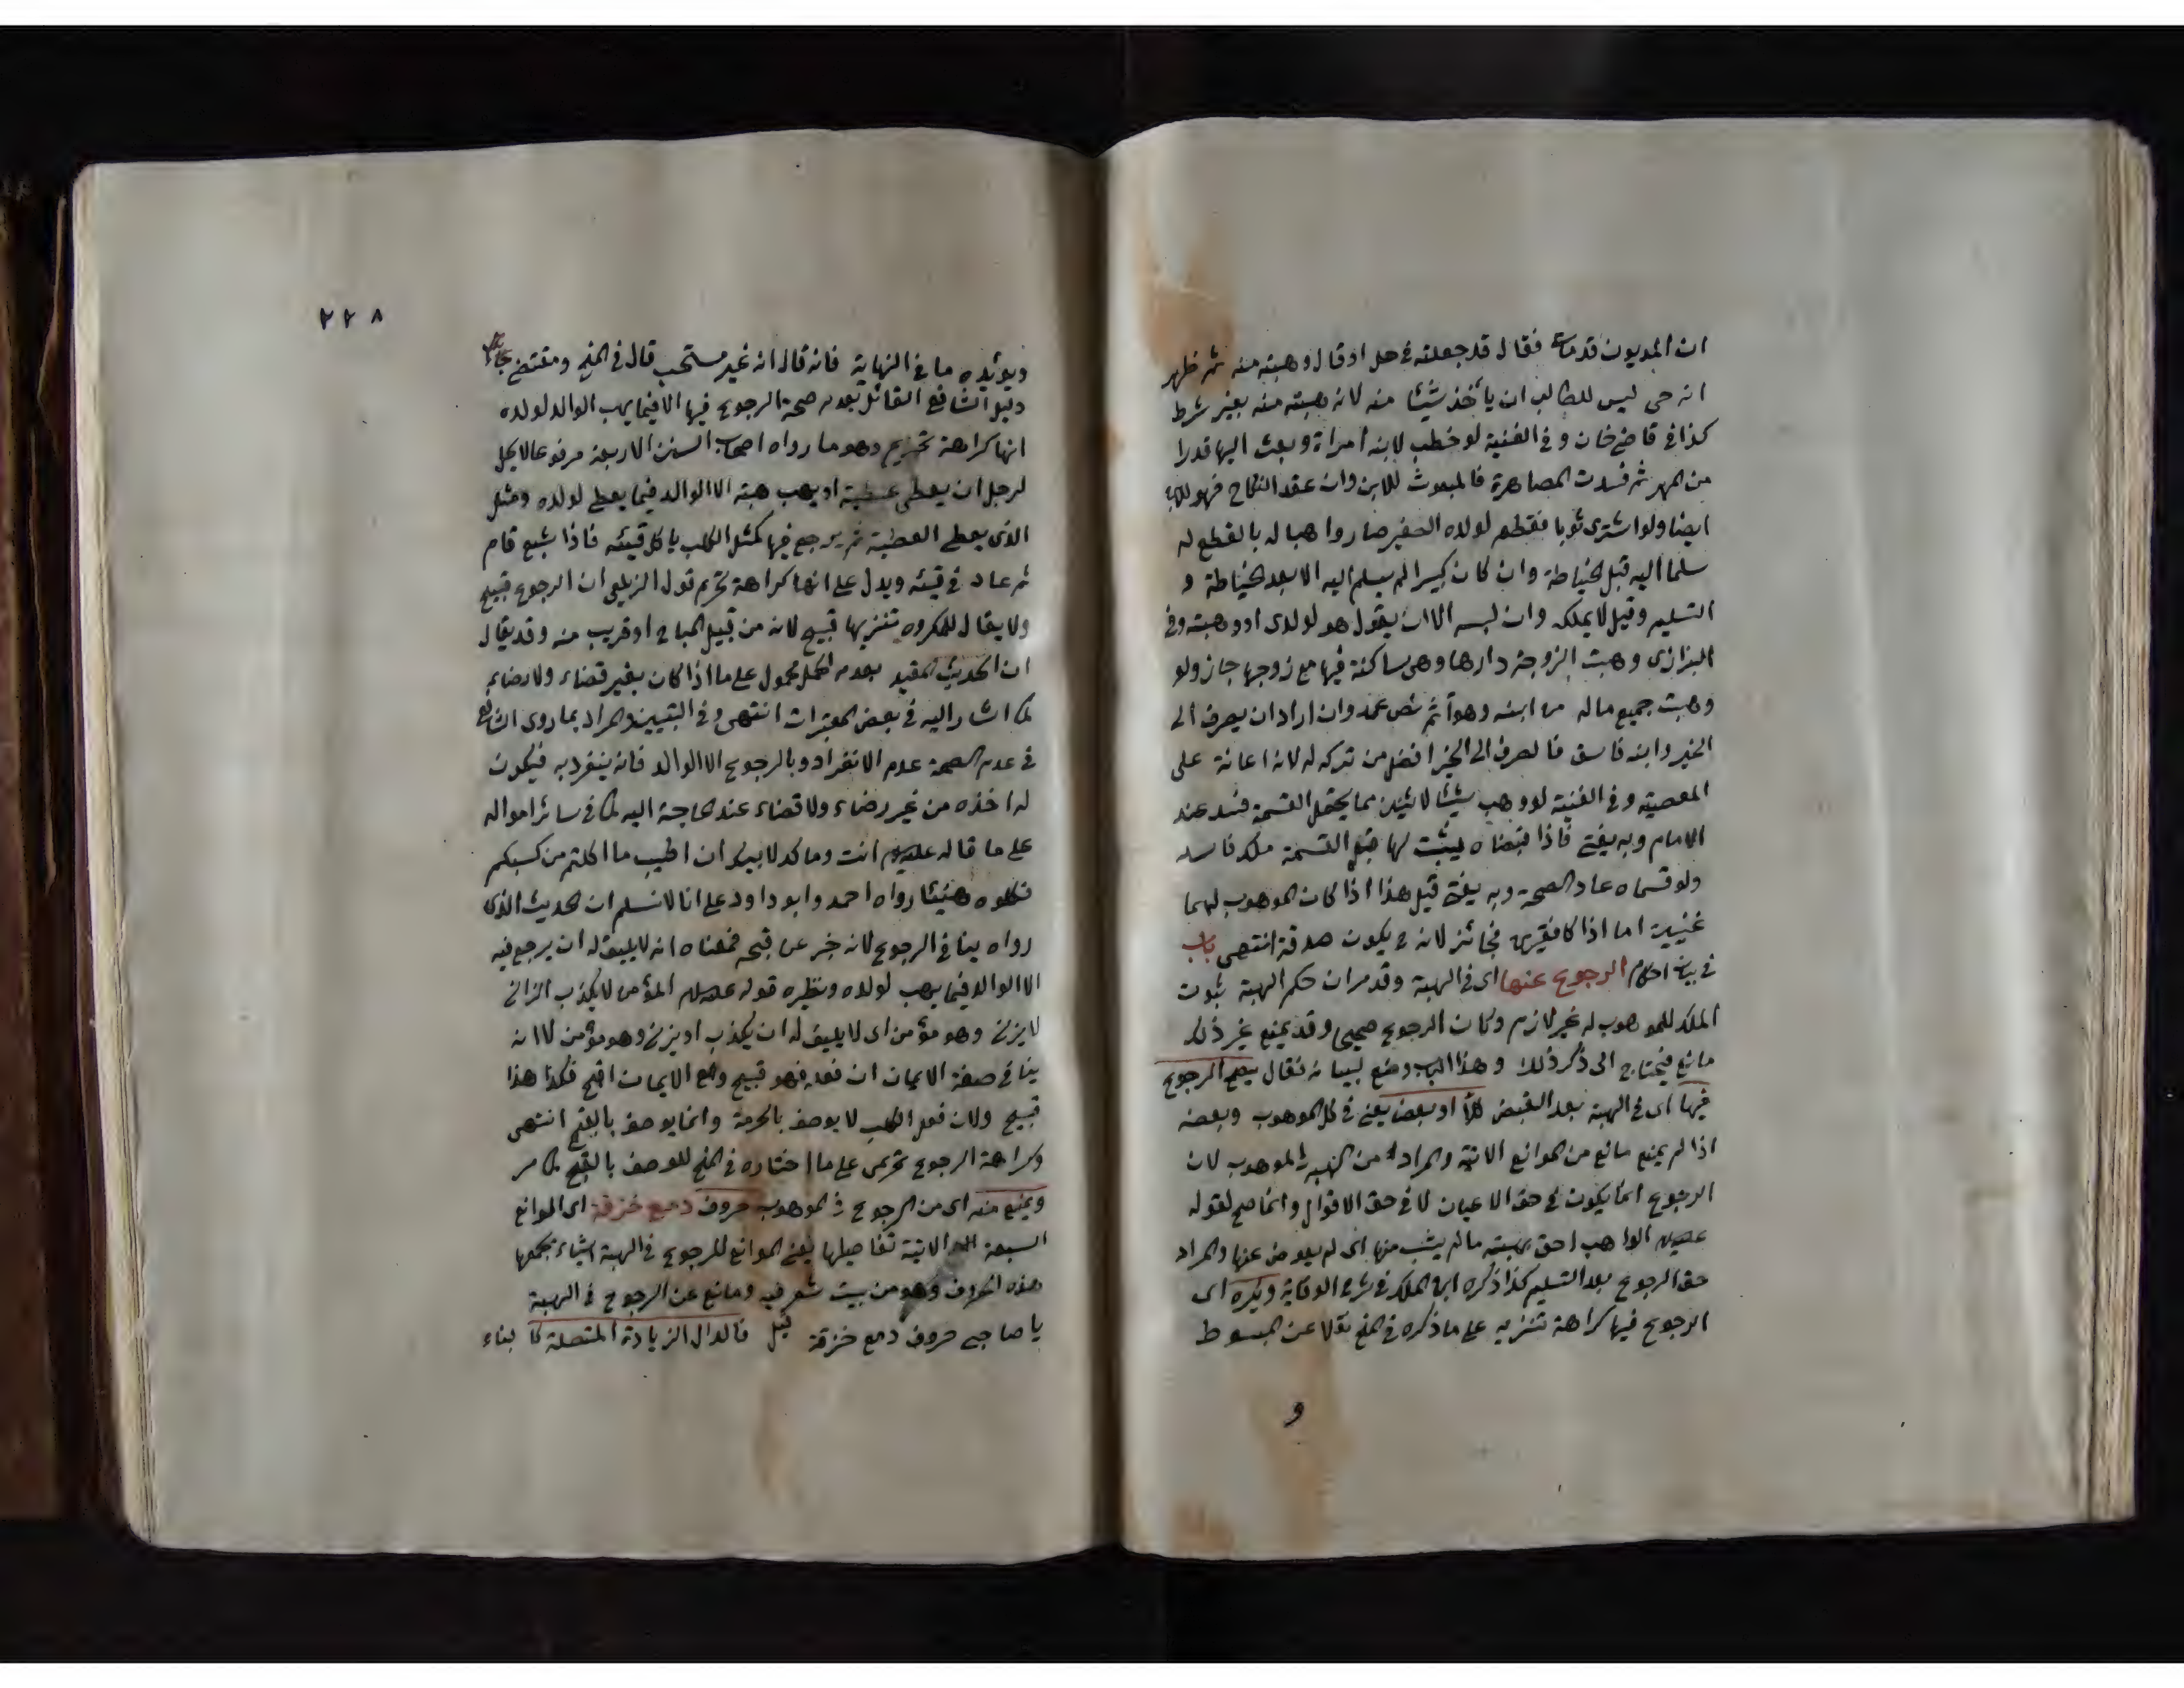 ان المديون قد مات فقال قد جعلته في حل او قال وهبته منه ثم ظهر
انه حي ليس للطالب ان يأخذ شيئا منه لانه وهبته منه بغير شرط
كذا في قاضي خان وفي القنية لو خطب لابنه امراة وبعث اليها قدرا
من المهر ثم فسدت المصاهرة فالمبعوث للابن وان عقد النكاح فهو للاب
ايضا ولو اشترى ثوبا فقطعه لولده الصغير صار واهبا له بالقطع له
سلما اليه قبل الخياطة وان كان كبيرا لم يسلم اليه الا بعد الخياطة و
التسليم وقيل لا يملكه وان لبسه الا ان يقول هو لولدى او وهبته وفي
البزازى وهبت الزوجة دارها وهي ساكنة فيها مع زوجها جاز ولو
وهبت جميع ماله من ابنه وهو آثم نص عمد وان اراد ان يصرف الى
الخير وابنه فاسق فالصرف الى الخير افضل من تركه له لانه اعانة على
المعصية وفي القنية لو وهب شيئا لاثنين مما يحتمل القسمة فسد عند
الامام وبه يفتى فاذا قبضاه يثبت لها قبل القسمة ملك فاسد
ولو قسماه عاد الصحة وبه يفتى قيل هذا اذا كانت الموهوب لهما
غنيين اما اذا كانا فقيرين فجائز لانه ح يكون صدقة انتهى باب
في بيان احكام الرجوع عنها اى في الهبة وقد مر ان حكم الهبة ثبوت
الملك للموهوب له غير لازم وكان الرجوع صحيحا وقد يمنع غير ذلك
مانع فيحتاج الى ذكر ذلك وهذا الباب وضع لبيانه فقال يصح الرجوع
فيها اى في الهبة بعد القبض كلا او بعض يعني في كل الموهوب وبعضه
اذا لم يمنع مانع من الموانع الاتية والمراد من الهبة الموهوب لان
الرجوع انما يكون في حق الاعيان لا في حق الاقوال وانما صح لقوله
عليه السلام الواهب احق بهبته ما لم يثب منها اى لم يعوض عنها والمراد
حق الرجوع بعد التسليم كذا ذكره ابن الملك في شرح الوقاية ويكره اى
الرجوع فيها كراهة تنزيه على ما ذكره في المنح نقلا عن المبسوط
و
٢٢٨
ويؤيده ما في النهاية فانه قال انه غير مستحب قال في المنح ومقتضى
دليل الشافعي القائل بعدم صحة الرجوع فيها الا فيما يهب الوالد لولده
انها كراهة تحريم وهو ما رواه اصحاب السنن الاربعة مرفوعا لا يحل
لرجل ان يعطى عطية او يهب هبة الا الوالد فيما يعطى لولده ومثل
الذى يعطى العطية ثم يرجع فيها كمثل الكلب ياكل قيئه فاذا شبع قام
ثم عاد في قيئه ويدل على انها كراهة تحريم قول الزيلعي ان الرجوع قبيح
ولا يقال للمكروه تنزيها قبيح لانه من قبيل المباح او قريب منه وقد يقال
ان الحديث المقيد بعدم الحل محمول على ما اذا كان بغير قضاء ولا رضاء
كما اشار اليه في بعض المعتبرات انتهى وفي التبيين والمراد بما روى الشافعي
في عدم الصحة عدم الانفراد وبالرجوع الا الوالد فانه ينفرد به فيكون
له اخذه من غير رضاء ولا قضاء عند الحاجة اليه كما في سائر امواله
على ما قاله عليه السلام انت ومالك لابيك ان اطيب ما اكلتم من كسبكم
فكلوه هنيئا رواه احمد وابو داود على انا لا نسلم ان الحديث الذى
رواه ينافي الرجوع لانه خبر عن قبحه فمعناه انه لا يليق له ان يرجع فيه
الا الوالد فيما يهب لولده ونظيره قوله عليه السلام المؤمن لا يكذب الزاني
لا يزني وهو مؤمن اى لا يليق له ان يكذب او يزني وهو مؤمن لا انه
ينافي صفة الايمان ان فعله فهو قبيح ومع الايمان اقبح فكذا هذا
قبيح ولان فعل الكلب لا يوصف بالحرمة وانما يوصف بالقبح انتهى
وكراهة الرجوع تحريمى على ما اختاره في المنح للوصف بالقبح كما مر
ويمنع منه اى من الرجوع في الموهوب حروف دمع خزقة اى الموانع
السبعة الاتية تفاصيلها يعني الموانع للرجوع في الهبة اشياء يجمعها
هذه الحروف وهو من بيت شعر فيه ومانع عن الرجوع في الهبة
يا صاحبي حروف دمع خزقة قيل فالدال الزيادة المتصلة كالبناء